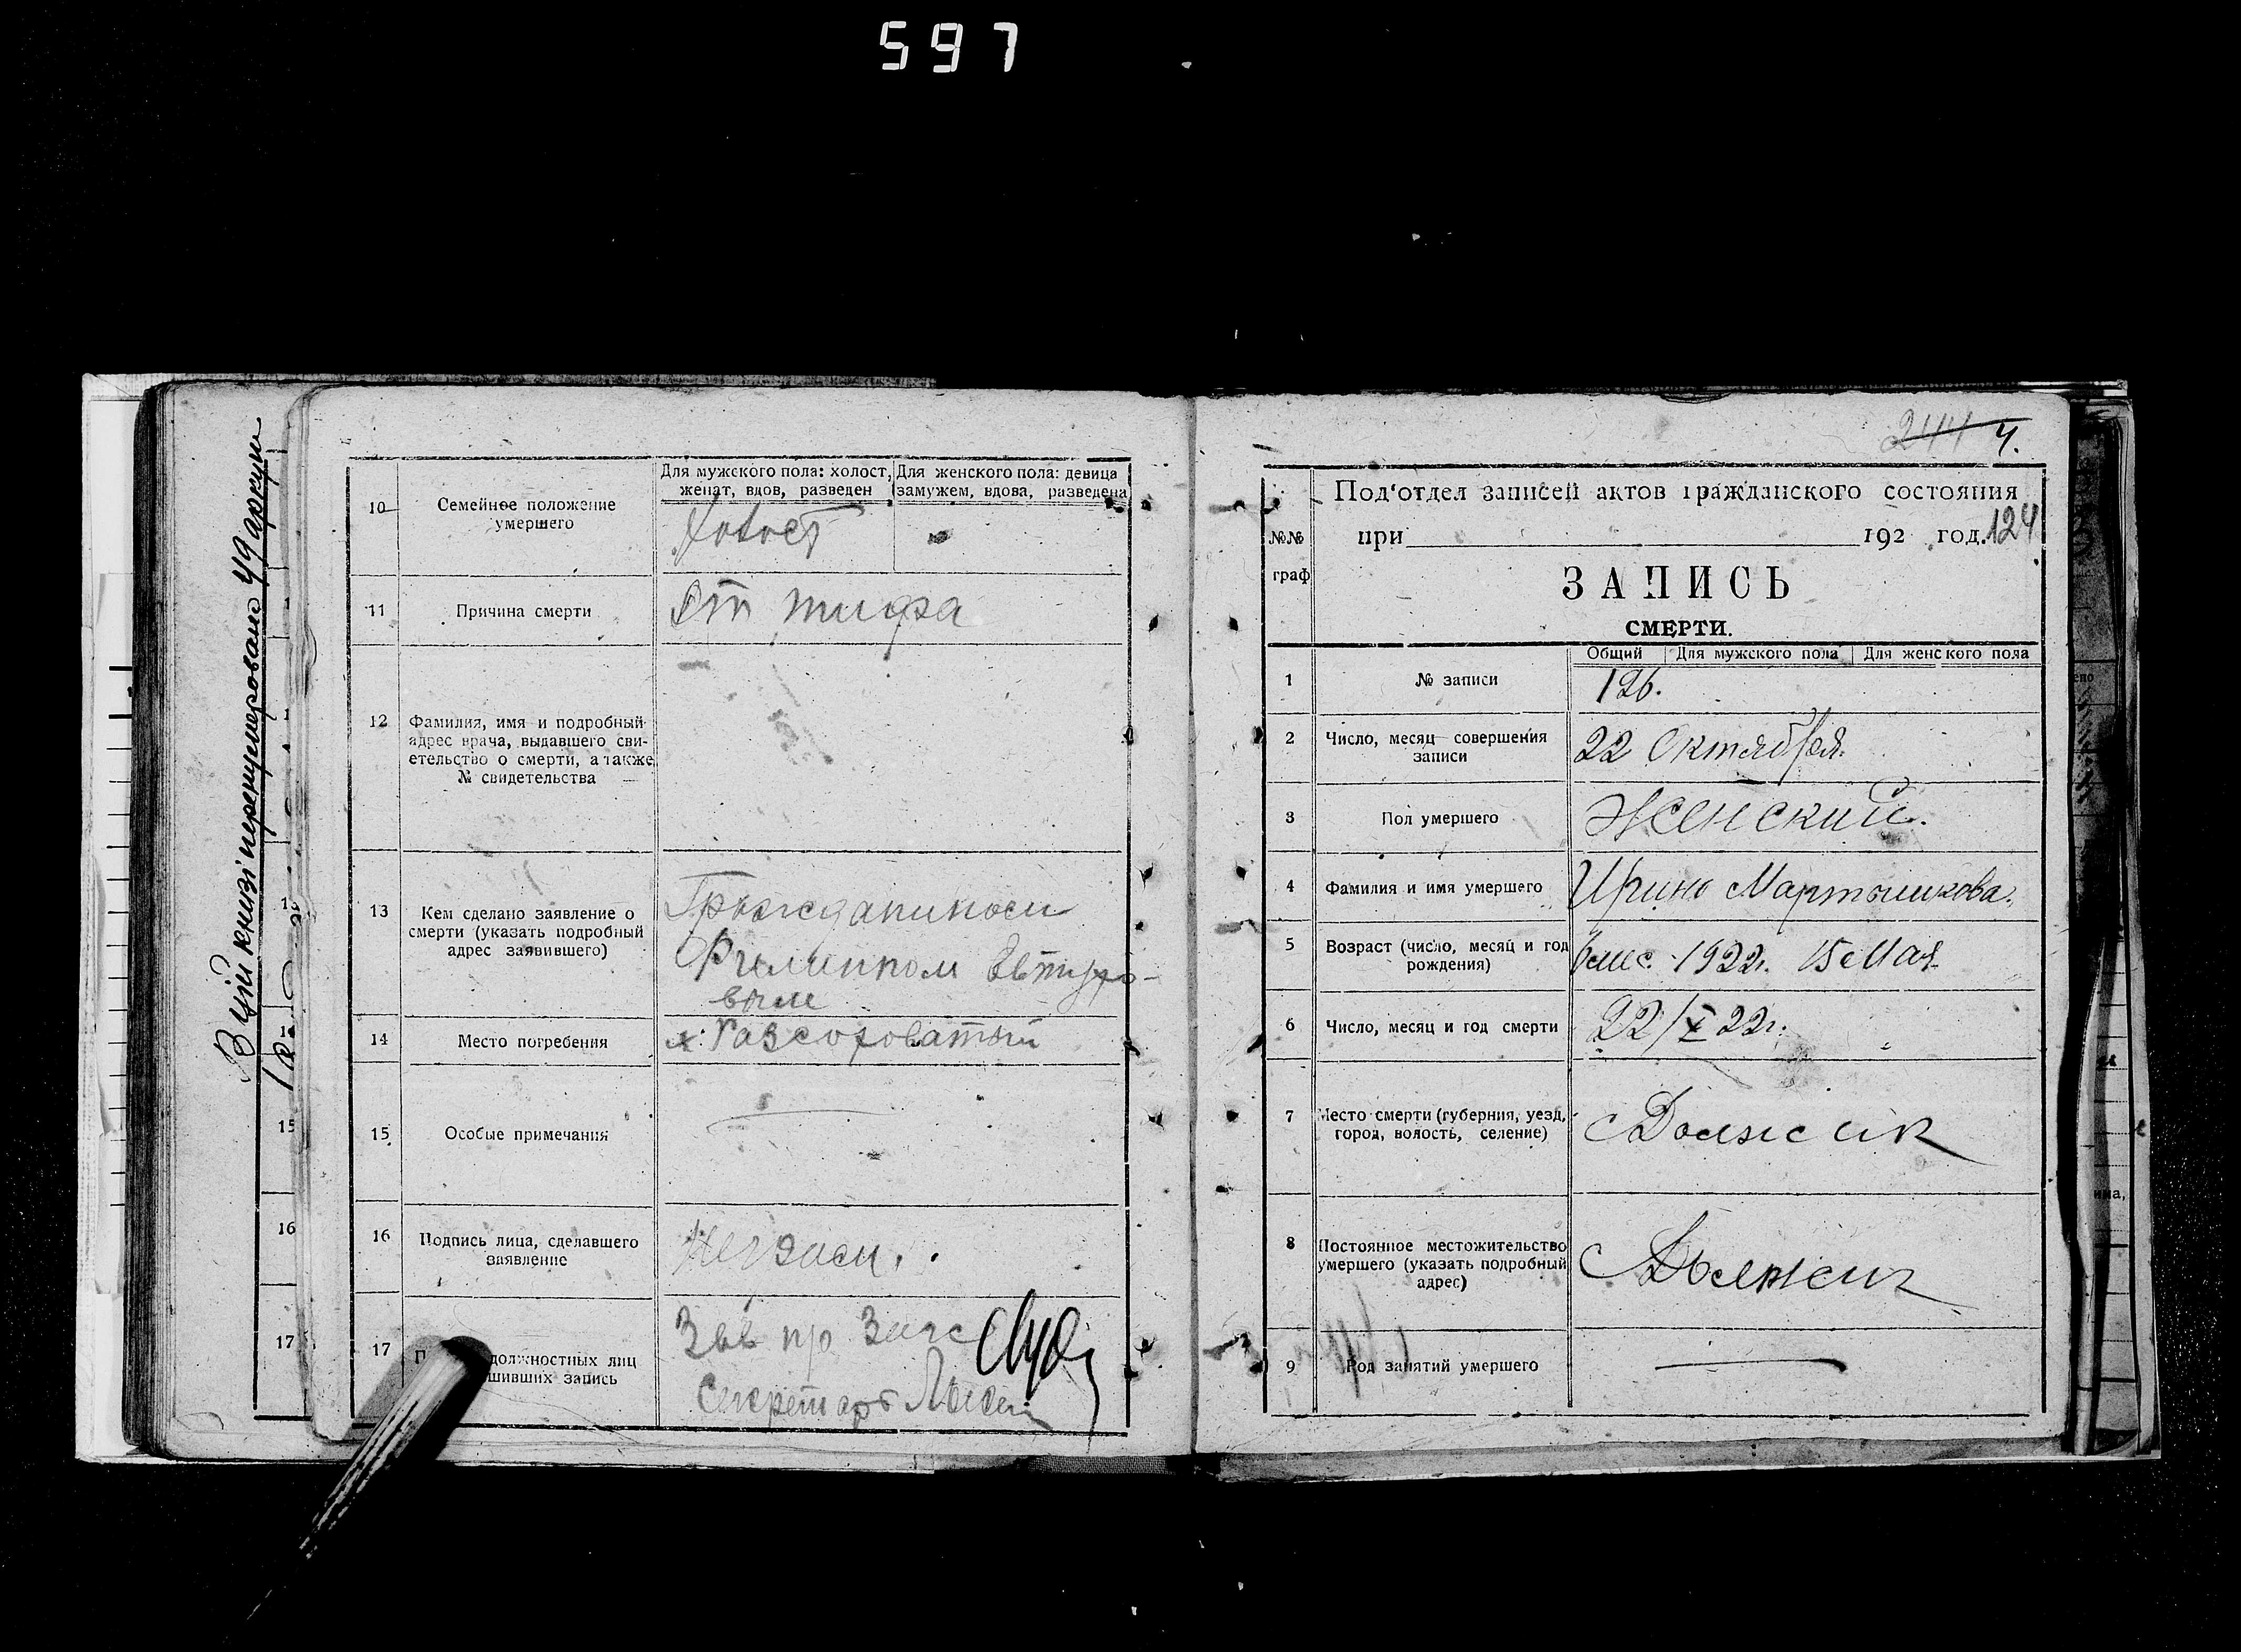 597
В цій книзі перенумеровано 49 аркуш
15
16
17
10
Семейное положение
умершего
Для мужского пола: холост,
женат, вдов, разведен
Для женского пола: девица
замужем, вдова, разведена
Холост
11
Причина смерти
От тифа
12
Фамилия, имя и подробный
адрес врача, выдавшего сви-
етельство о смерти, а также
№ свидетельства
13
Кем сделано заявление о
смерти (указать подробный
адрес заявившего)
Гражданином
Филиппом
вым
14
Место погребения
х. Разсоховатый
15
Особые примечания
16
Подпись лица, сделавшего
заявление
17
должностных лиц
шивших запись
Зав п/о Загс
Секретарь
244 4.
Под'отдел записей актов гражданского состояния
при 192 год. 124
№№
граф
ЗАПИСЬ
СМЕРТИ.
Общий
Для мужского пола
Для женского пола
1
№ записи
126.
2
Число, месяц совершения
записи
22 Октября.
3
Пол умершего
Женский.
4
Фамилия и имя умершего
Ирина Мартынкова.
5
Возраст (число, месяц и год
рождения)
6 мес. 1922г. 15 Мая
6
Число, месяц и год смерти
22/X 22г.
7
Место смерти (губерния, уезд,
город, волость, селение)
с Должик
8
Постоянное местожительство
умершего (указать подробный
адрес)
с Должик
9
Род занятий умершего